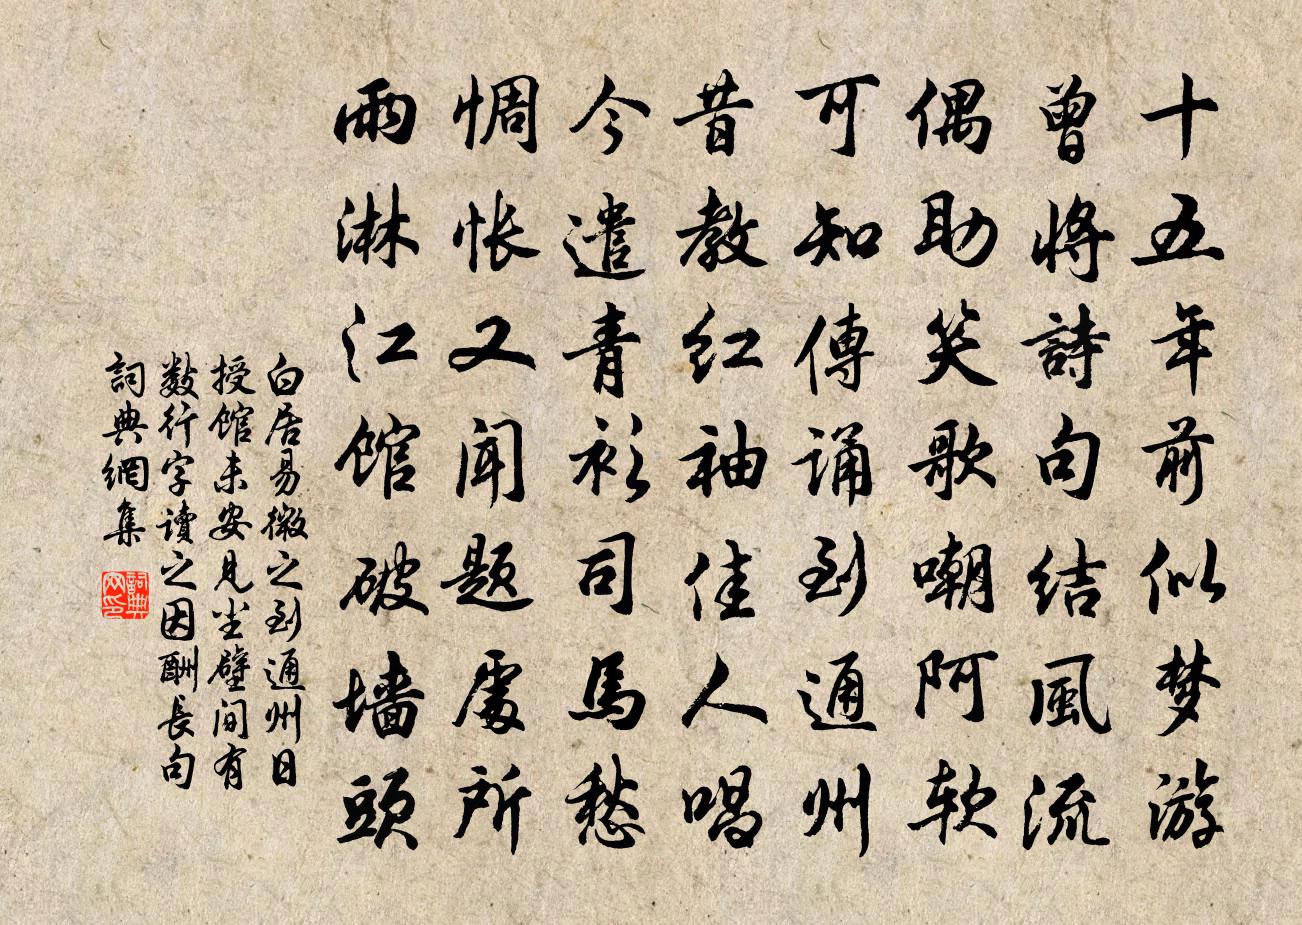 十五年前似梦游
曾将詩句结風流
偶助笑歌嘲阿软
可知傳誦到通州
昔教红袖佳人唱
今遣青衫司馬愁
惆怅又闻题處所
雨淋江馆破墙頭
白居易微之到通州日
授馆未安見尘壁间有
数行字讀之因酬長句
詞典網集
詞典
网印